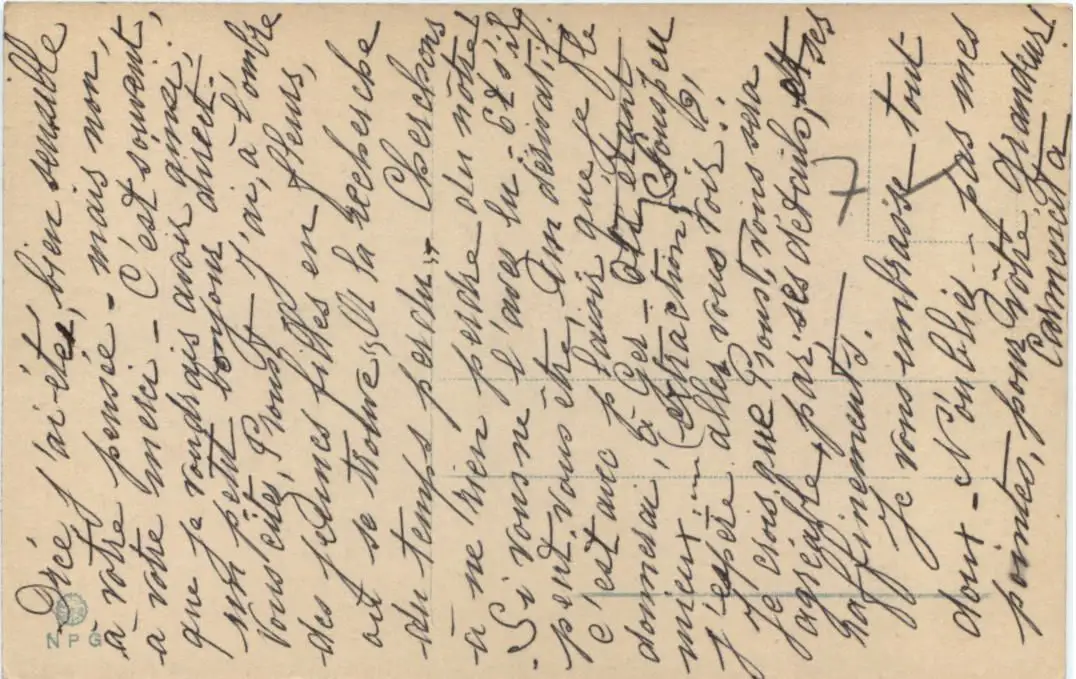 Dzée j'ai été, bien sensible
à votre pensée - mais non,
à votre merci - C'est souvent,
que je voudrais avoir ainsi,
un petit bonjour direct.
Vous cites, Proust - J'ai, "à l'ombre
des jeunes filles en fleurs,
où se trouve, "A la recherche
du temps perdu" - Cherchons
à ne rien perdre du nôtre!
Si vous ne l'avez lu - Et s'il
peut, vous être, un dérivatif
c'est avec plaisir que je le
donnerai, à Ger - étant
mieux (extraction) (Soupzen
j'espère aller vous voir.
je crois que Proust, vous sera
agréable, par, ses détails, et ses
raffinements.
Je vous embrasse tout
doux - N'oubliez - pas mes
pointes, pour Vôtre Grandeur!
Carmencita
7
N P G